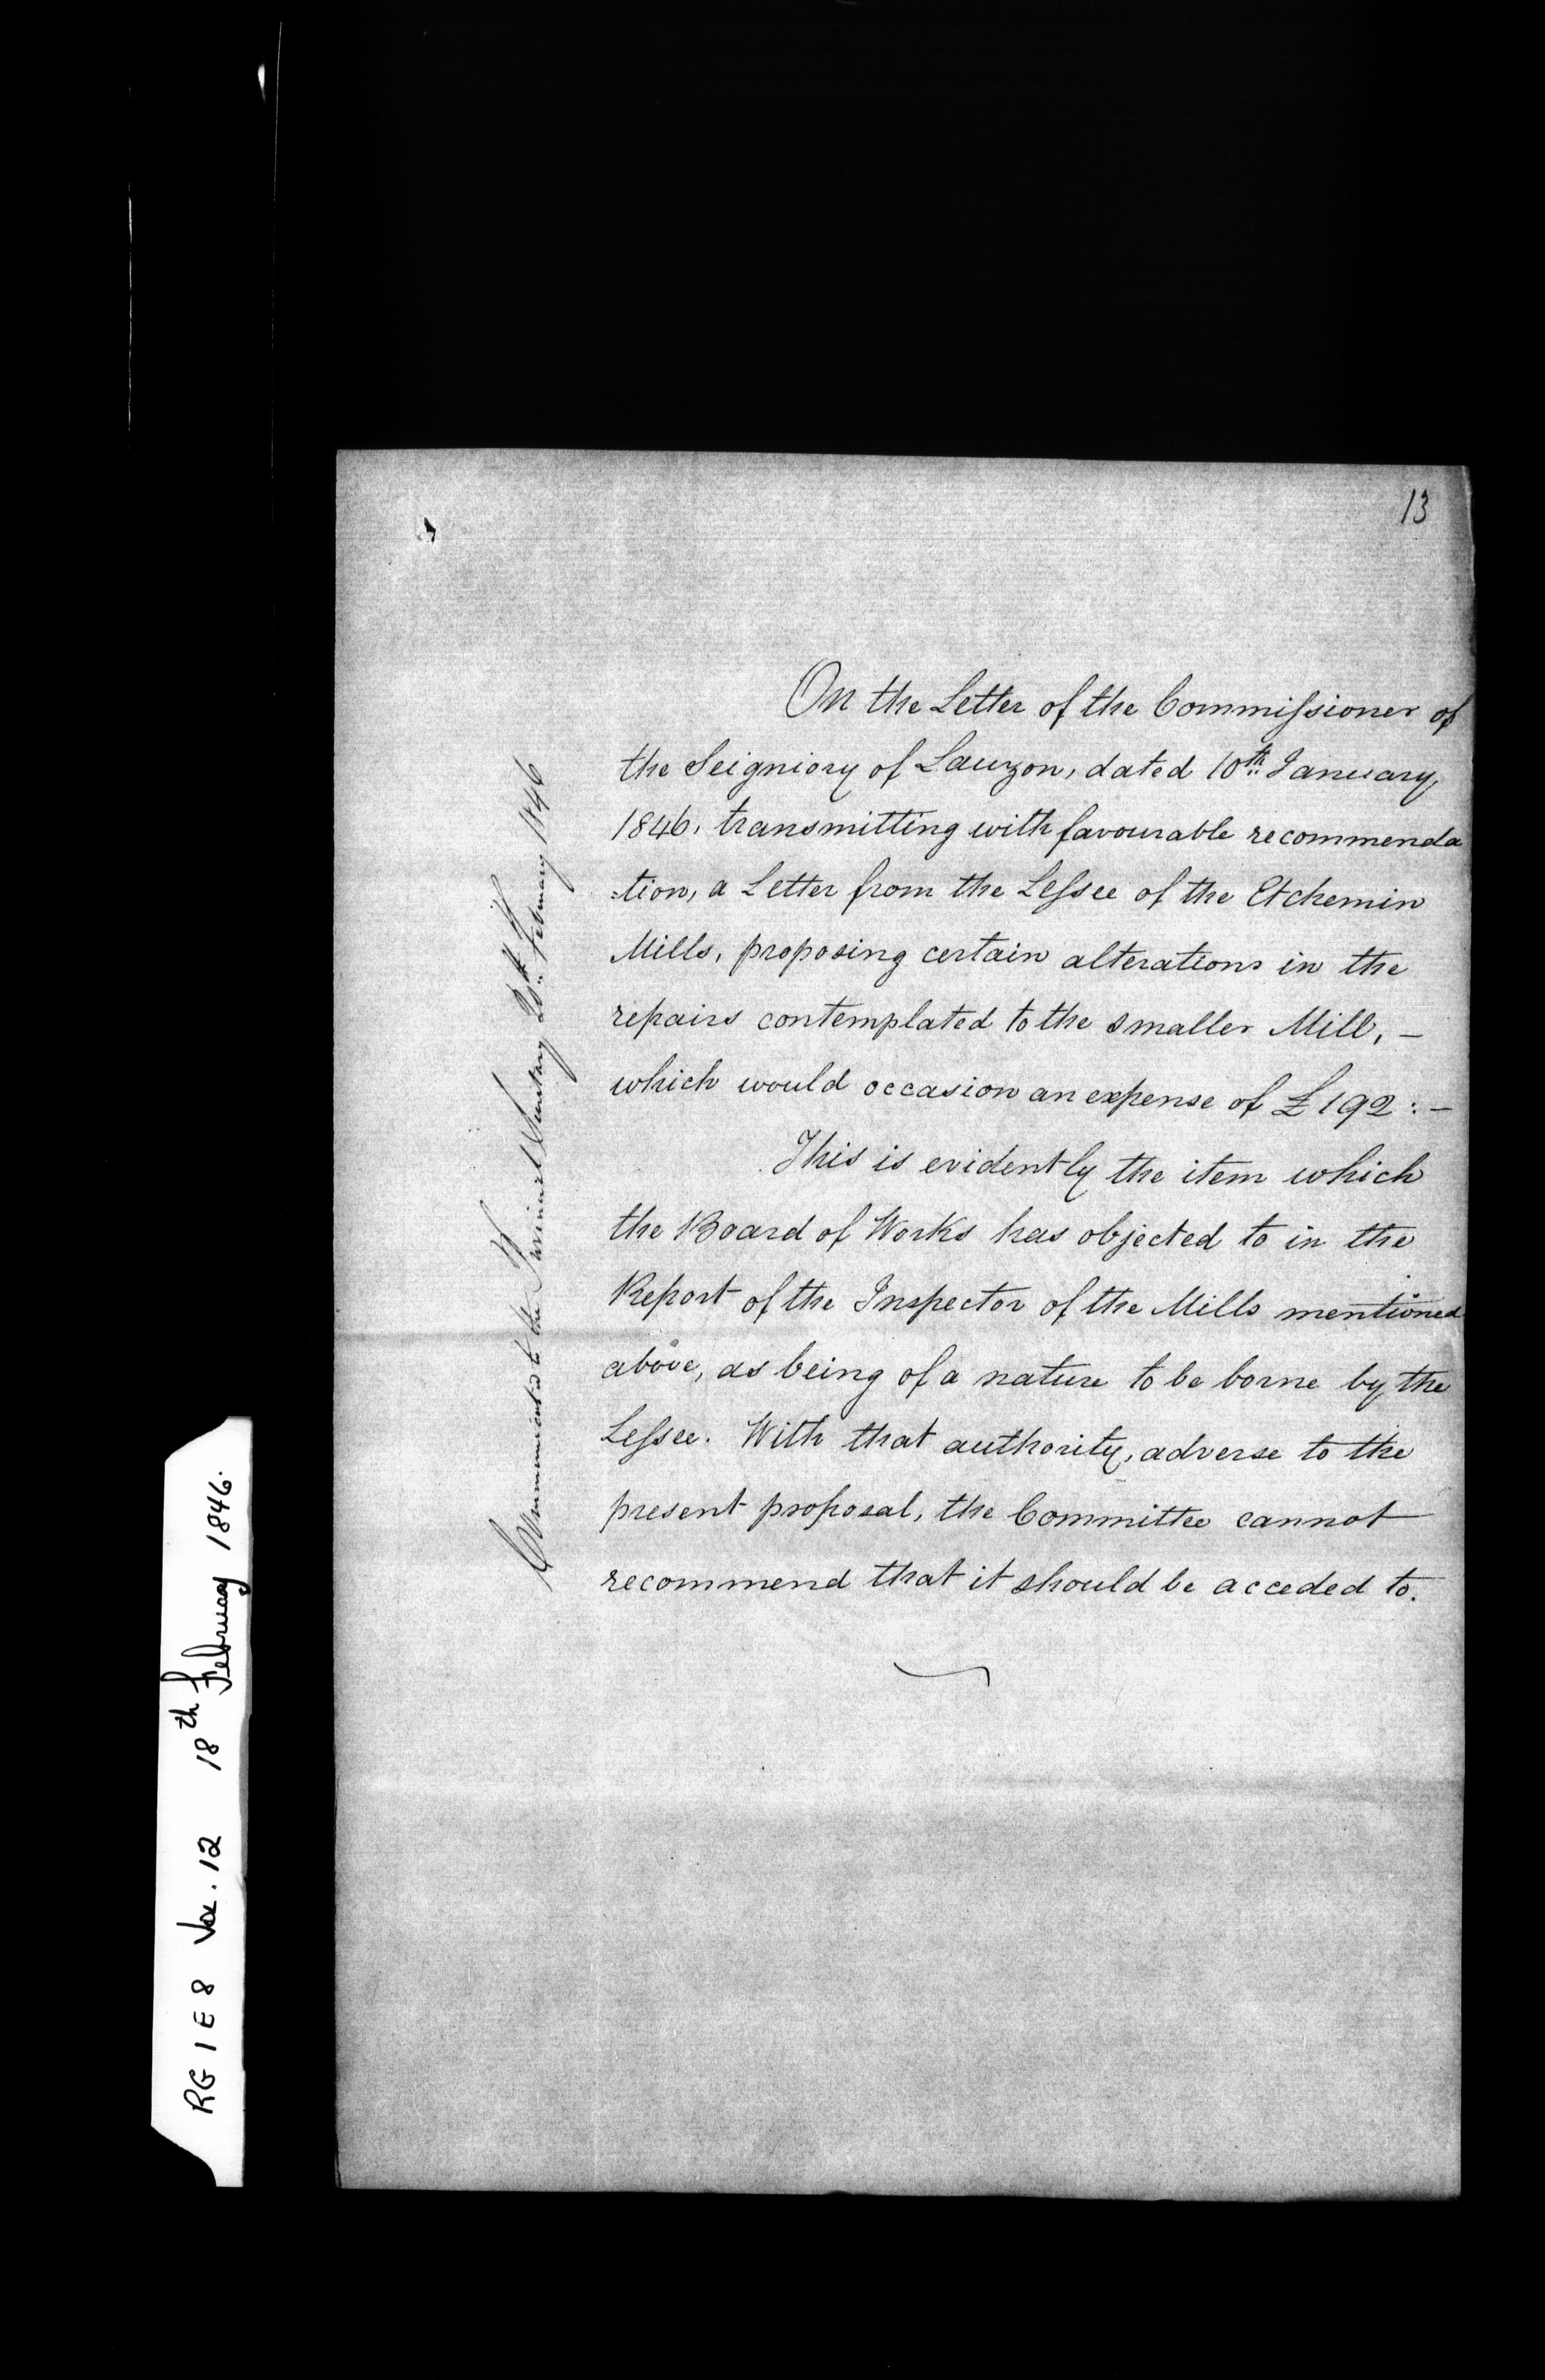 13
On the Letter of the Commissioner of
the Seigniory of Lauzon, dated 10th January,
1846, transmitting with favourable recommenda
:tion, a Letter from the Lessee of the Etchemin
Mills, proposing certain alterations in the
repairs contemplated to the smaller Mill, —
which would occasion an expense of £192 : —
This is evidently the item which
the Board of Works has objected to in the
Report of the Inspector of the Mills mentioned
above, as being of a nature to be borne by the
Lessee. With that authority, adverse to the
present proposal, the Committee cannot
recommend that it should be acceded to.
Communicated to the Provincial Secretary 20th February 1846
RG 1 E 8 Vol. 12 18th February 1846.